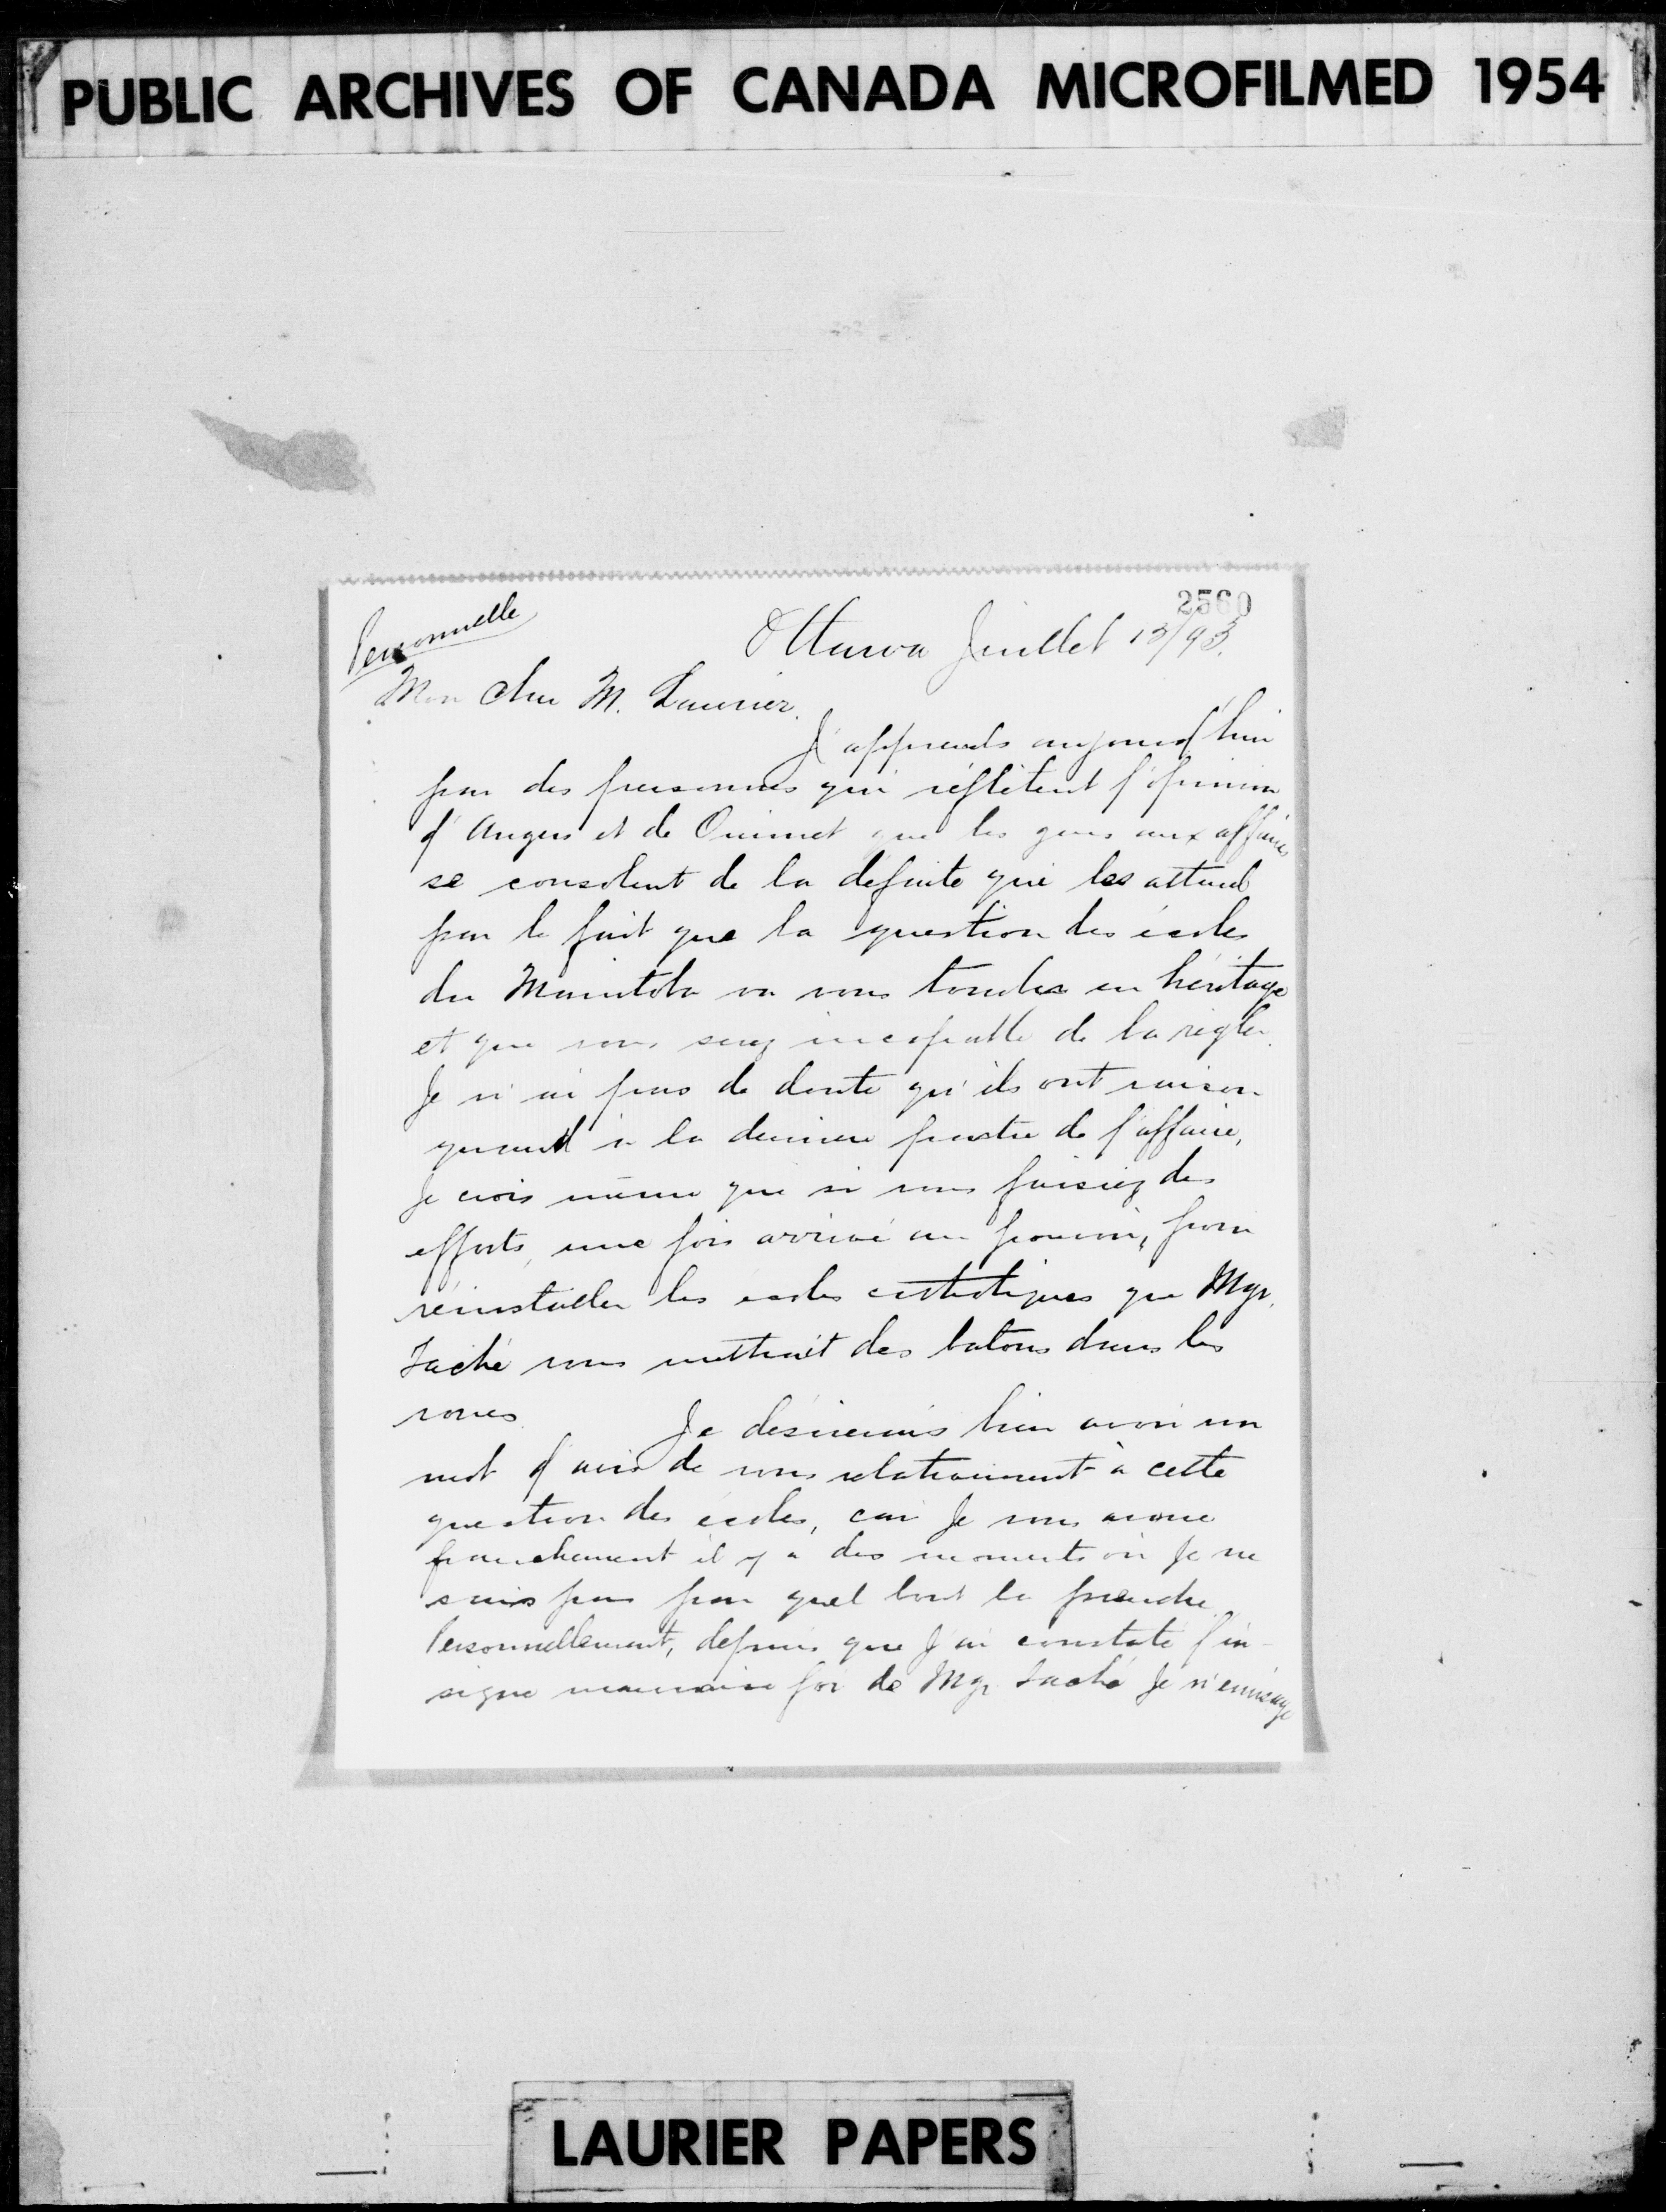 PUBLIC ARCHIVES OF CANADA MICROFILMED 1954
2560
Personnelle
Ottawa Juillet 13/93.
Mon cher M. Laurier.
J'apprends aujourd'hui
par des personnes qui réflètent l'opinion
d'Angers et de Ouimet que les gens aux affaires
se consolent de la défaite qui les attend
par le fait que la question des écoles
du Manitoba va vous tomber en héritage
et que vous serez incapable de la régler.
Je n'ai pas de doute qu'ils ont raison
quand à la derniere partie de l'affaire,
Je crois même que si vous faisiez des
efforts, une fois arrivé au pouvoir, pour
réinstaller les écoles catholiques que Mgr.
Taché vous mettrait des batons dans les
roues.
Je désirerais bien avoir un
mot d'avis de vous relativement à cette
question des écoles, car Je vous avoue
franchement il y a des moments où Je ne
sais pas par quel bout la prendre.
Personnellement, depuis que J'ai constaté l'in-
signe mauvaise foi de Mgr Taché Je n'envisage
LAURIER PAPERS